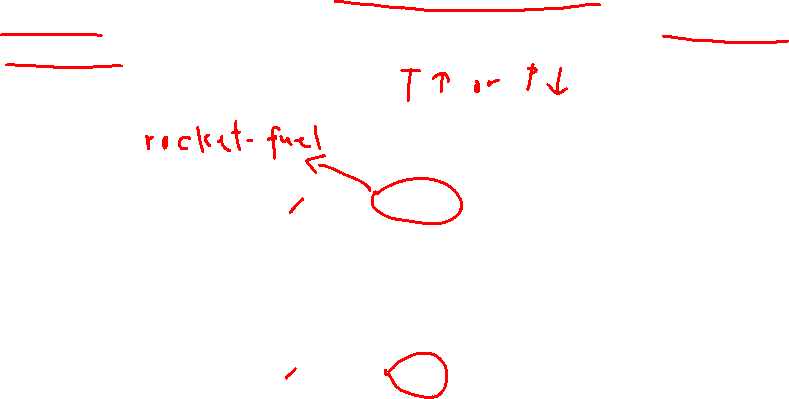 T ↑ or P ↓
rocket-fuel